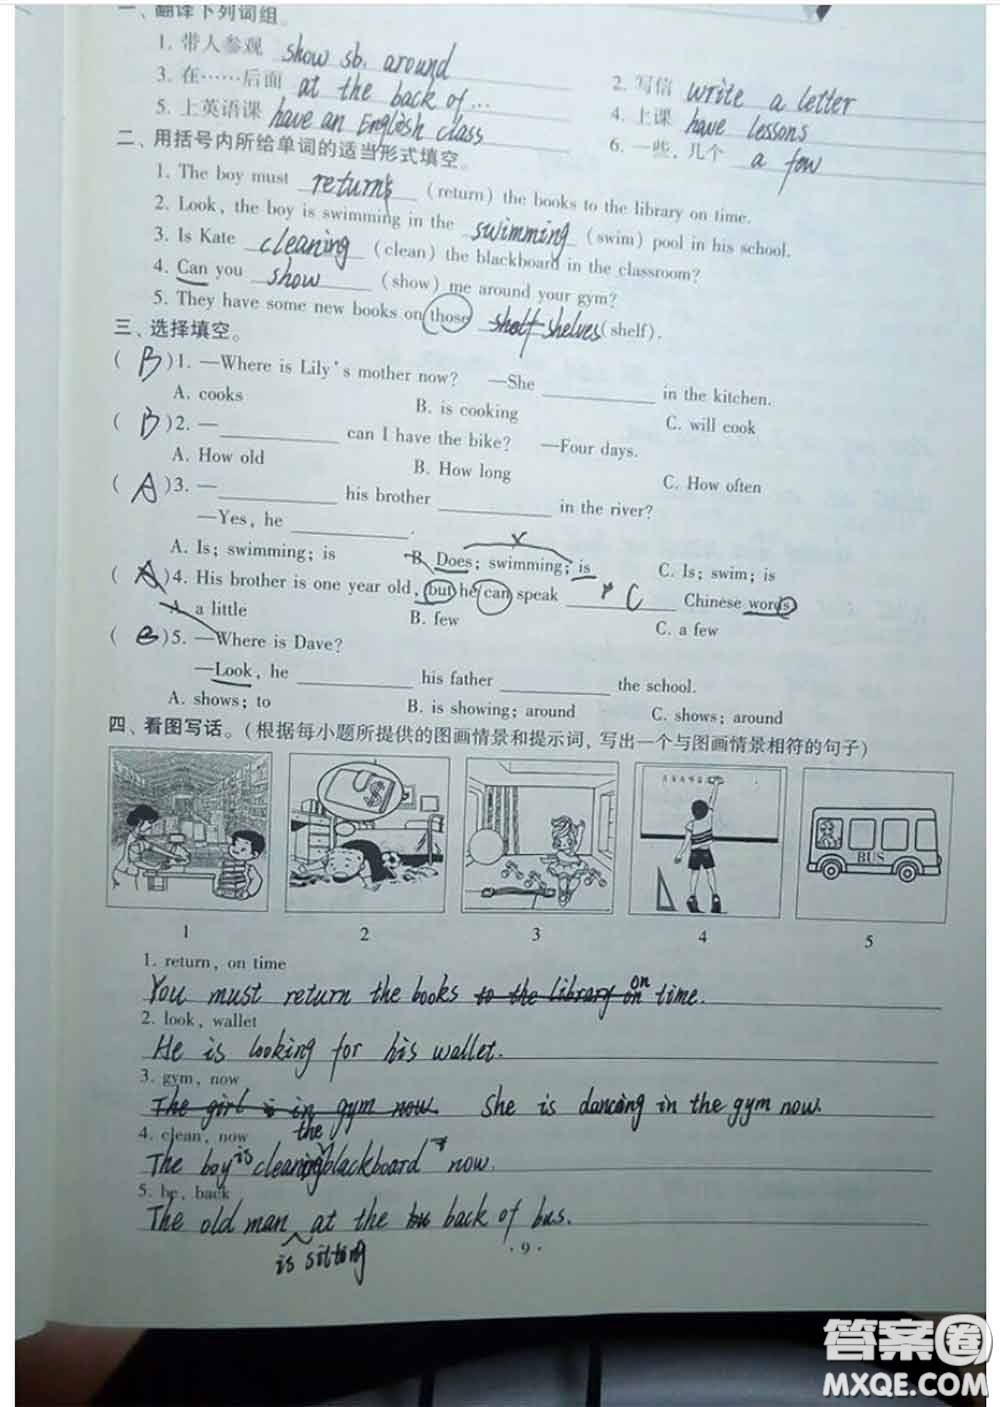 一、翻译下列词组。
1. 带人参观 show sb. around
2. 写信 write a letter
3. 在……后面 at the back of ...
4. 上课 have lessons
5. 上英语课 have an English class
6. 一些，几个 a few
二、用括号内所给单词的适当形式填空。
1. The boy must return (return) the books to the library on time.
2. Look, the boy is swimming in the swimming (swim) pool in his school.
3. Is Kate cleaning (clean) the blackboard in the classroom?
4. Can you show (show) me around your gym?
5. They have some new books on those shelf shelves (shelf).
三、选择填空。
( B )1. —Where is Lily's mother now? —She ________ in the kitchen.
A. cooks B. is cooking C. will cook
( B )2. —________ can I have the bike? —Four days.
A. How old B. How long C. How often
( A )3. —________ his brother ________ in the river?
—Yes, he ________.
A. Is; swimming; is B. Does; swimming; is C. Is; swim; is
( A )4. His brother is one year old, but he can speak C Chinese words
A. a little B. few C. a few
( B )5. —Where is Dave?
—Look, he ________ his father ________ the school.
A. shows; to B. is showing; around C. shows; around
四、看图写话。(根据每小题所提供的图画情景和提示词，写出一个与图画情景相符的句子)
BUS
1 2 3 4 5
1. return, on time
You must return the books to the library on on time.
2. look, wallet
He is looking for his wallet.
3. gym, now
The girl is in gym now. She is dancing in the gym now.
4. clean, now
The boy is cleaning the blackboard now.
5. be, back
The old man is sitting at the back of bus.
· 9 ·
答案圈
MXQE.COM